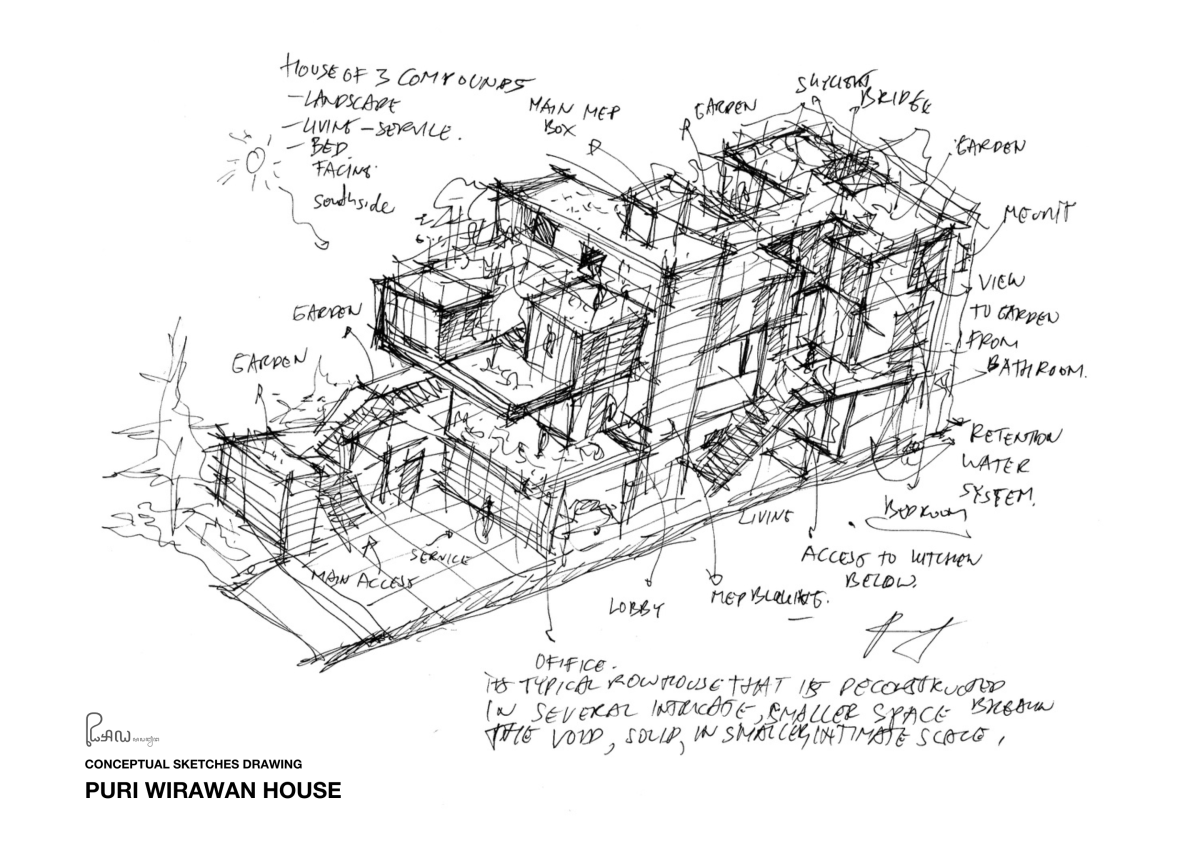 HOUSE OF 3 COMPOUNDS
- LANDSCAPE
- LIVING - SERVICE.
- BED
FACING
southside
MAIN MEP
BOX
GARDEN
SKYLIGHT
BRIDGE
GARDEN
VIEW
TO GARDEN
FROM
BATHROOM.
GARDEN
GARDEN
RETENTION
WATER
SYSTEM.
BEDROOM
LIVING
ACCESS TO KITCHEN
BELOW.
SERVICE
MAIN ACCESS
LOBBY
MEP
OFIFICE.
TYPICAL ROWHOUSE THAT IS DECONSTRUCTED
IN SEVERAL INTRICATE, SMALLER SPACE
THE VOID, SOLID, IN SMALLER, INTIMATE SCALE,
CONCEPTUAL SKETCHES DRAWING
PURI WIRAWAN HOUSE